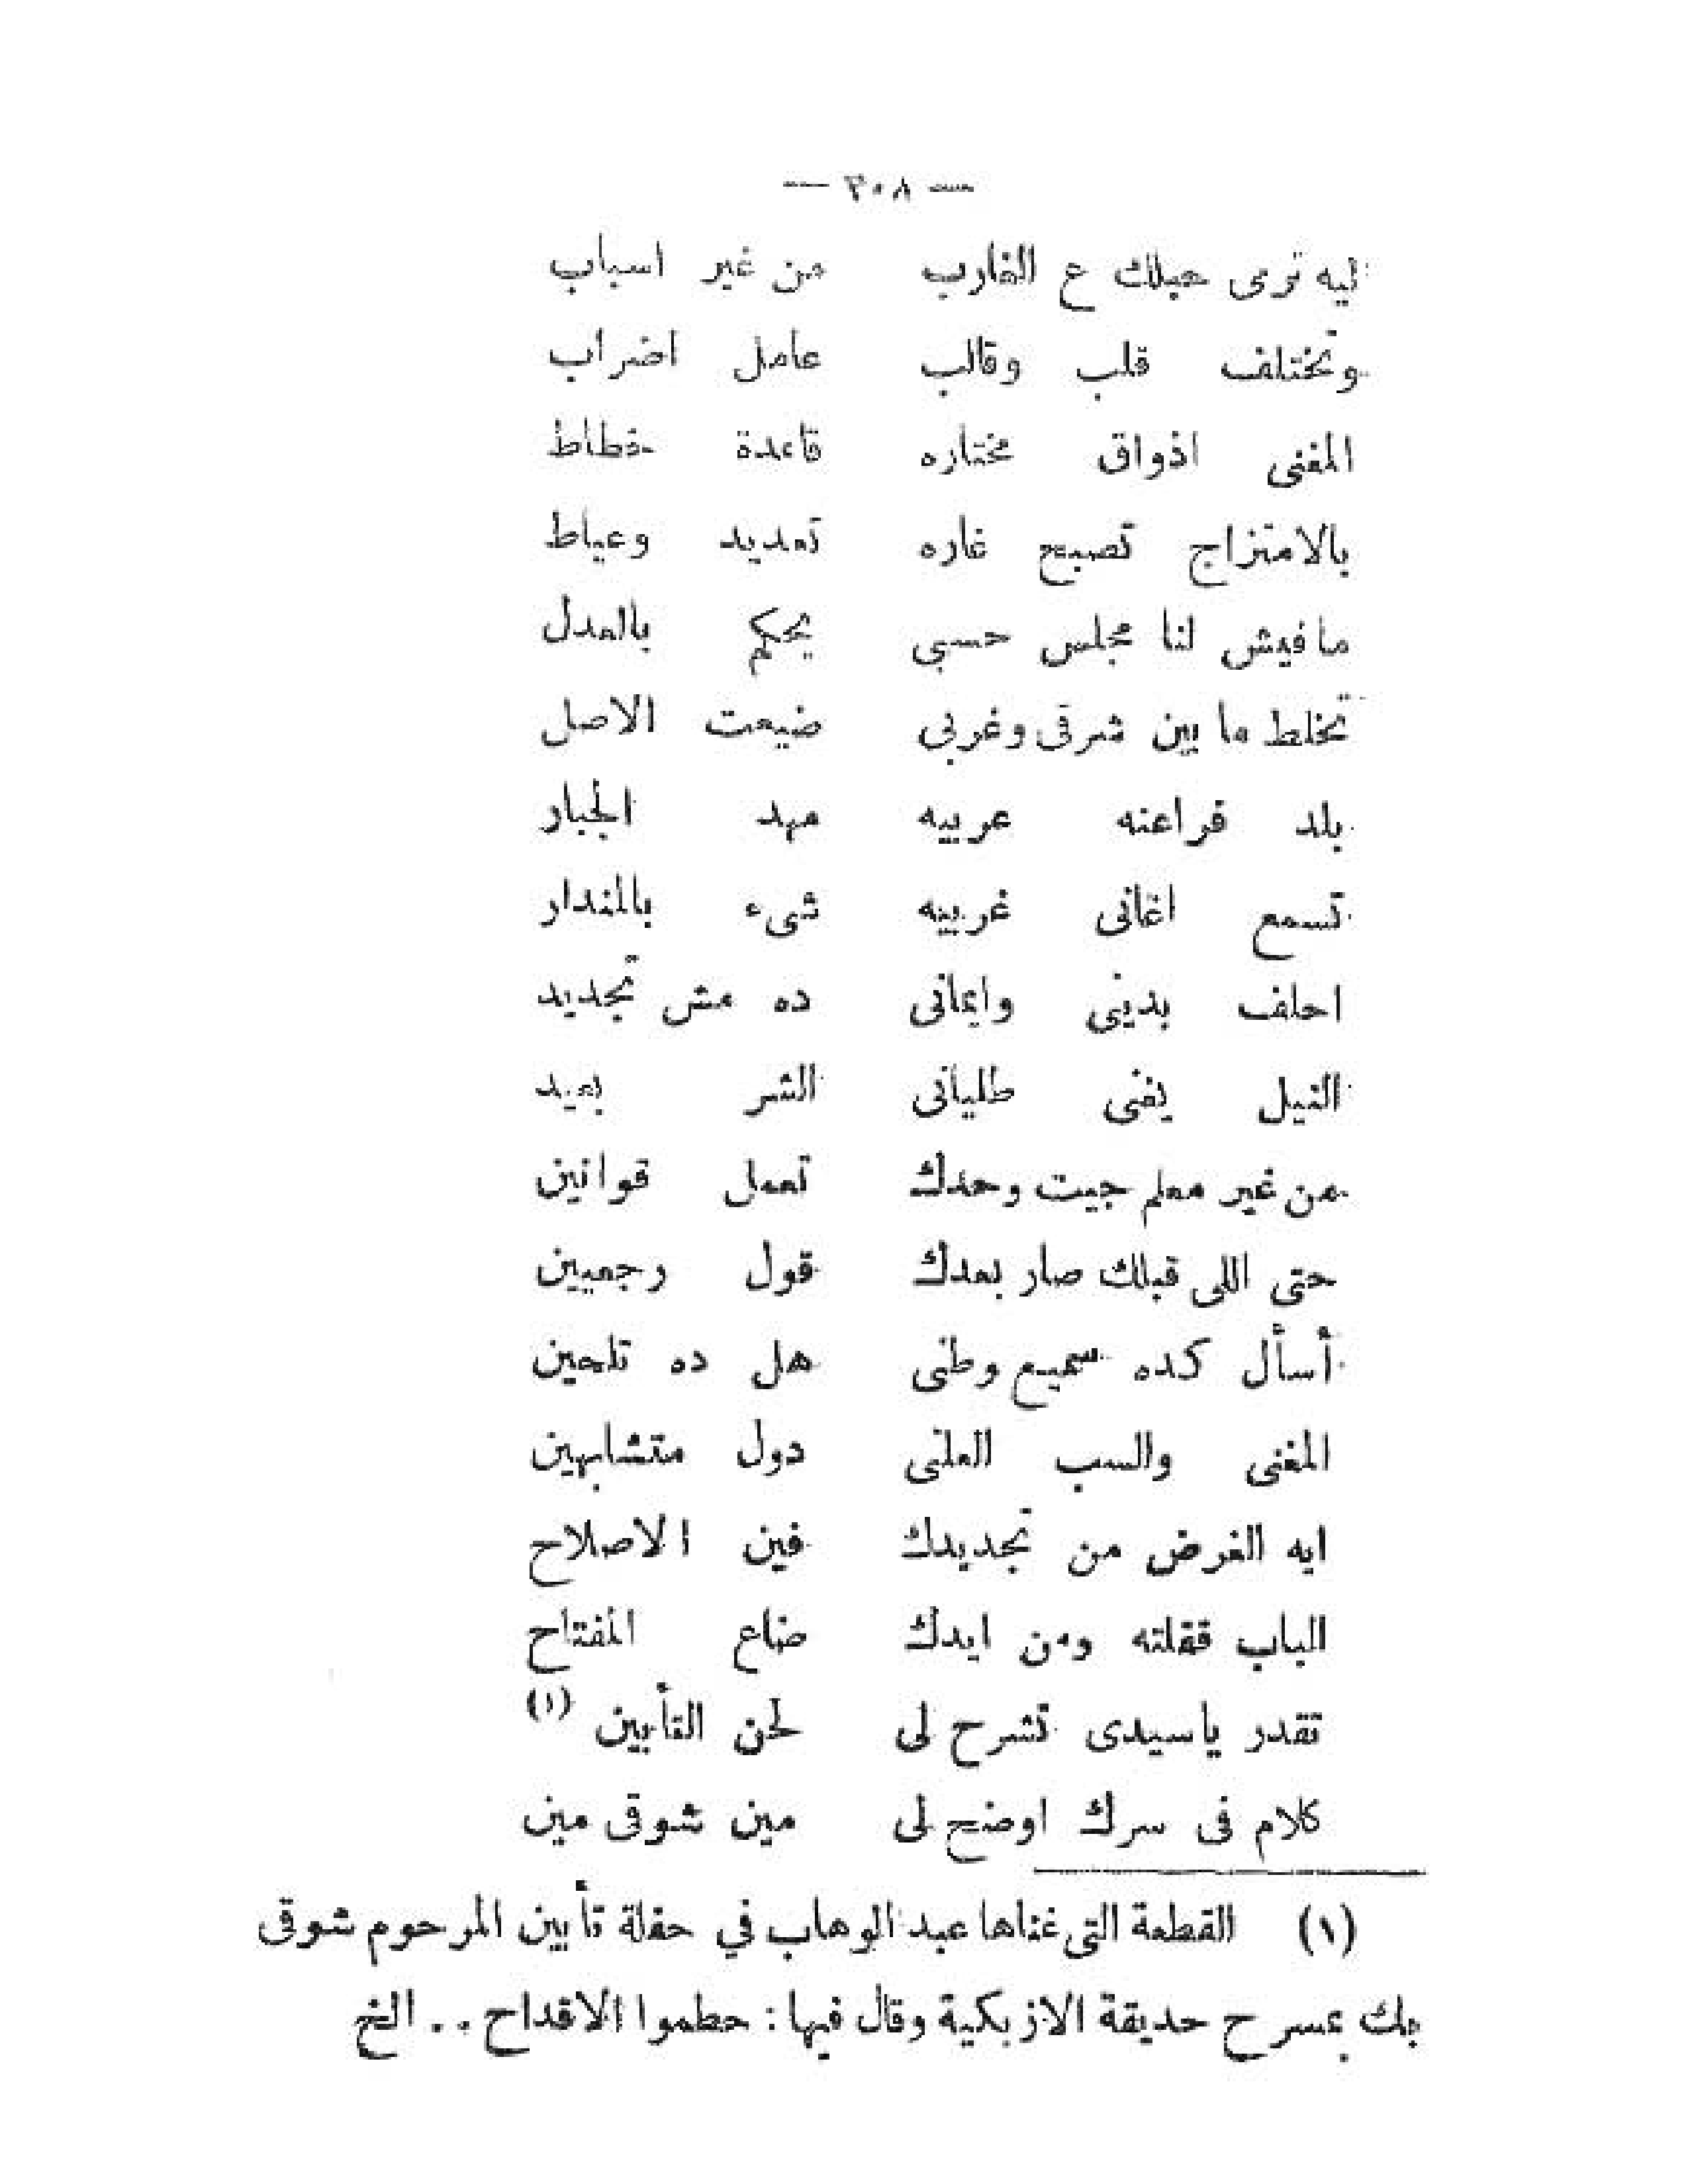 — ٣٠٨ —
ليه ترمى حبلك ع الغارب من غير اسباب
وتختلف قلب وقالب عامل اضراب
المغنى اذواق مختاره قاعدة خطاط
بالامتزاج تصبح غاره تعديد وعياط
مافيش لنا مجلس حسبى يحكم بالعدل
تخلط ما بين شرقى وغربى ضيعت الاصل
بلد فراعنه عربيه مهد الجبار
تسمع اغانى غربيه شىء بالمندار
احلف بدينى وايمانى ده مش تجديد
النيل يغنى طليانى الشر بعيد
من غير معلم جيت وحدك تعمل قوانين
حتى اللى قبلك صار بعدك قول رجعيين
أسأل كده سميع وطنى هل ده تلحين
المغنى والسب العلنى دول متشابهين
ايه الغرض من تجديدك فين الاصلاح
الباب قفلته ومن ايدك ضاع المفتاح
تقدر ياسيدى تشرح لى لحن التأبين (١)
كلام فى سرك اوضح لى مين شوقى مين
(١) القطعة التى غناها عبد الوهاب في حفلة تأبين المرحوم شوقى
بك بمسرح حديقة الازبكية وقال فيها : حطموا الاقداح . . الخ